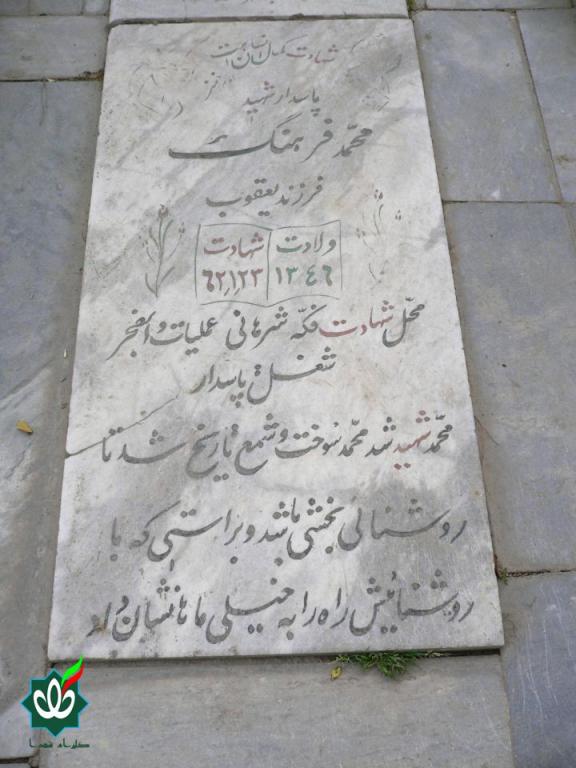 شهادت کمال انسانیت
پاسدار شهید
محمّد فرهنگ
فرزند یعقوب
ولادت
۱۳۴۶
شهادت
۶۲,۱,۲۳
محلّ شهادت فکّه شرهانی عملیات والفجر
شغل پاسدار
محمّد شهید شد محمّد سوخت و شمع تاریخ شد تا
روشنائی بخش ما باشد و براستی که با
روشنائیش راه را به خیلی ما ها نشان داد